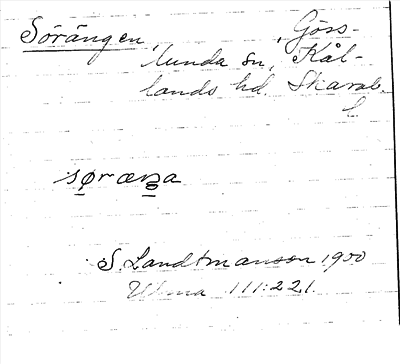 Sörängen, Göss-
lunda sn, Kål-
lands hd. Skarab.
l.
søræŋa
S. Landtmanson 1950
Ulma 111:221.